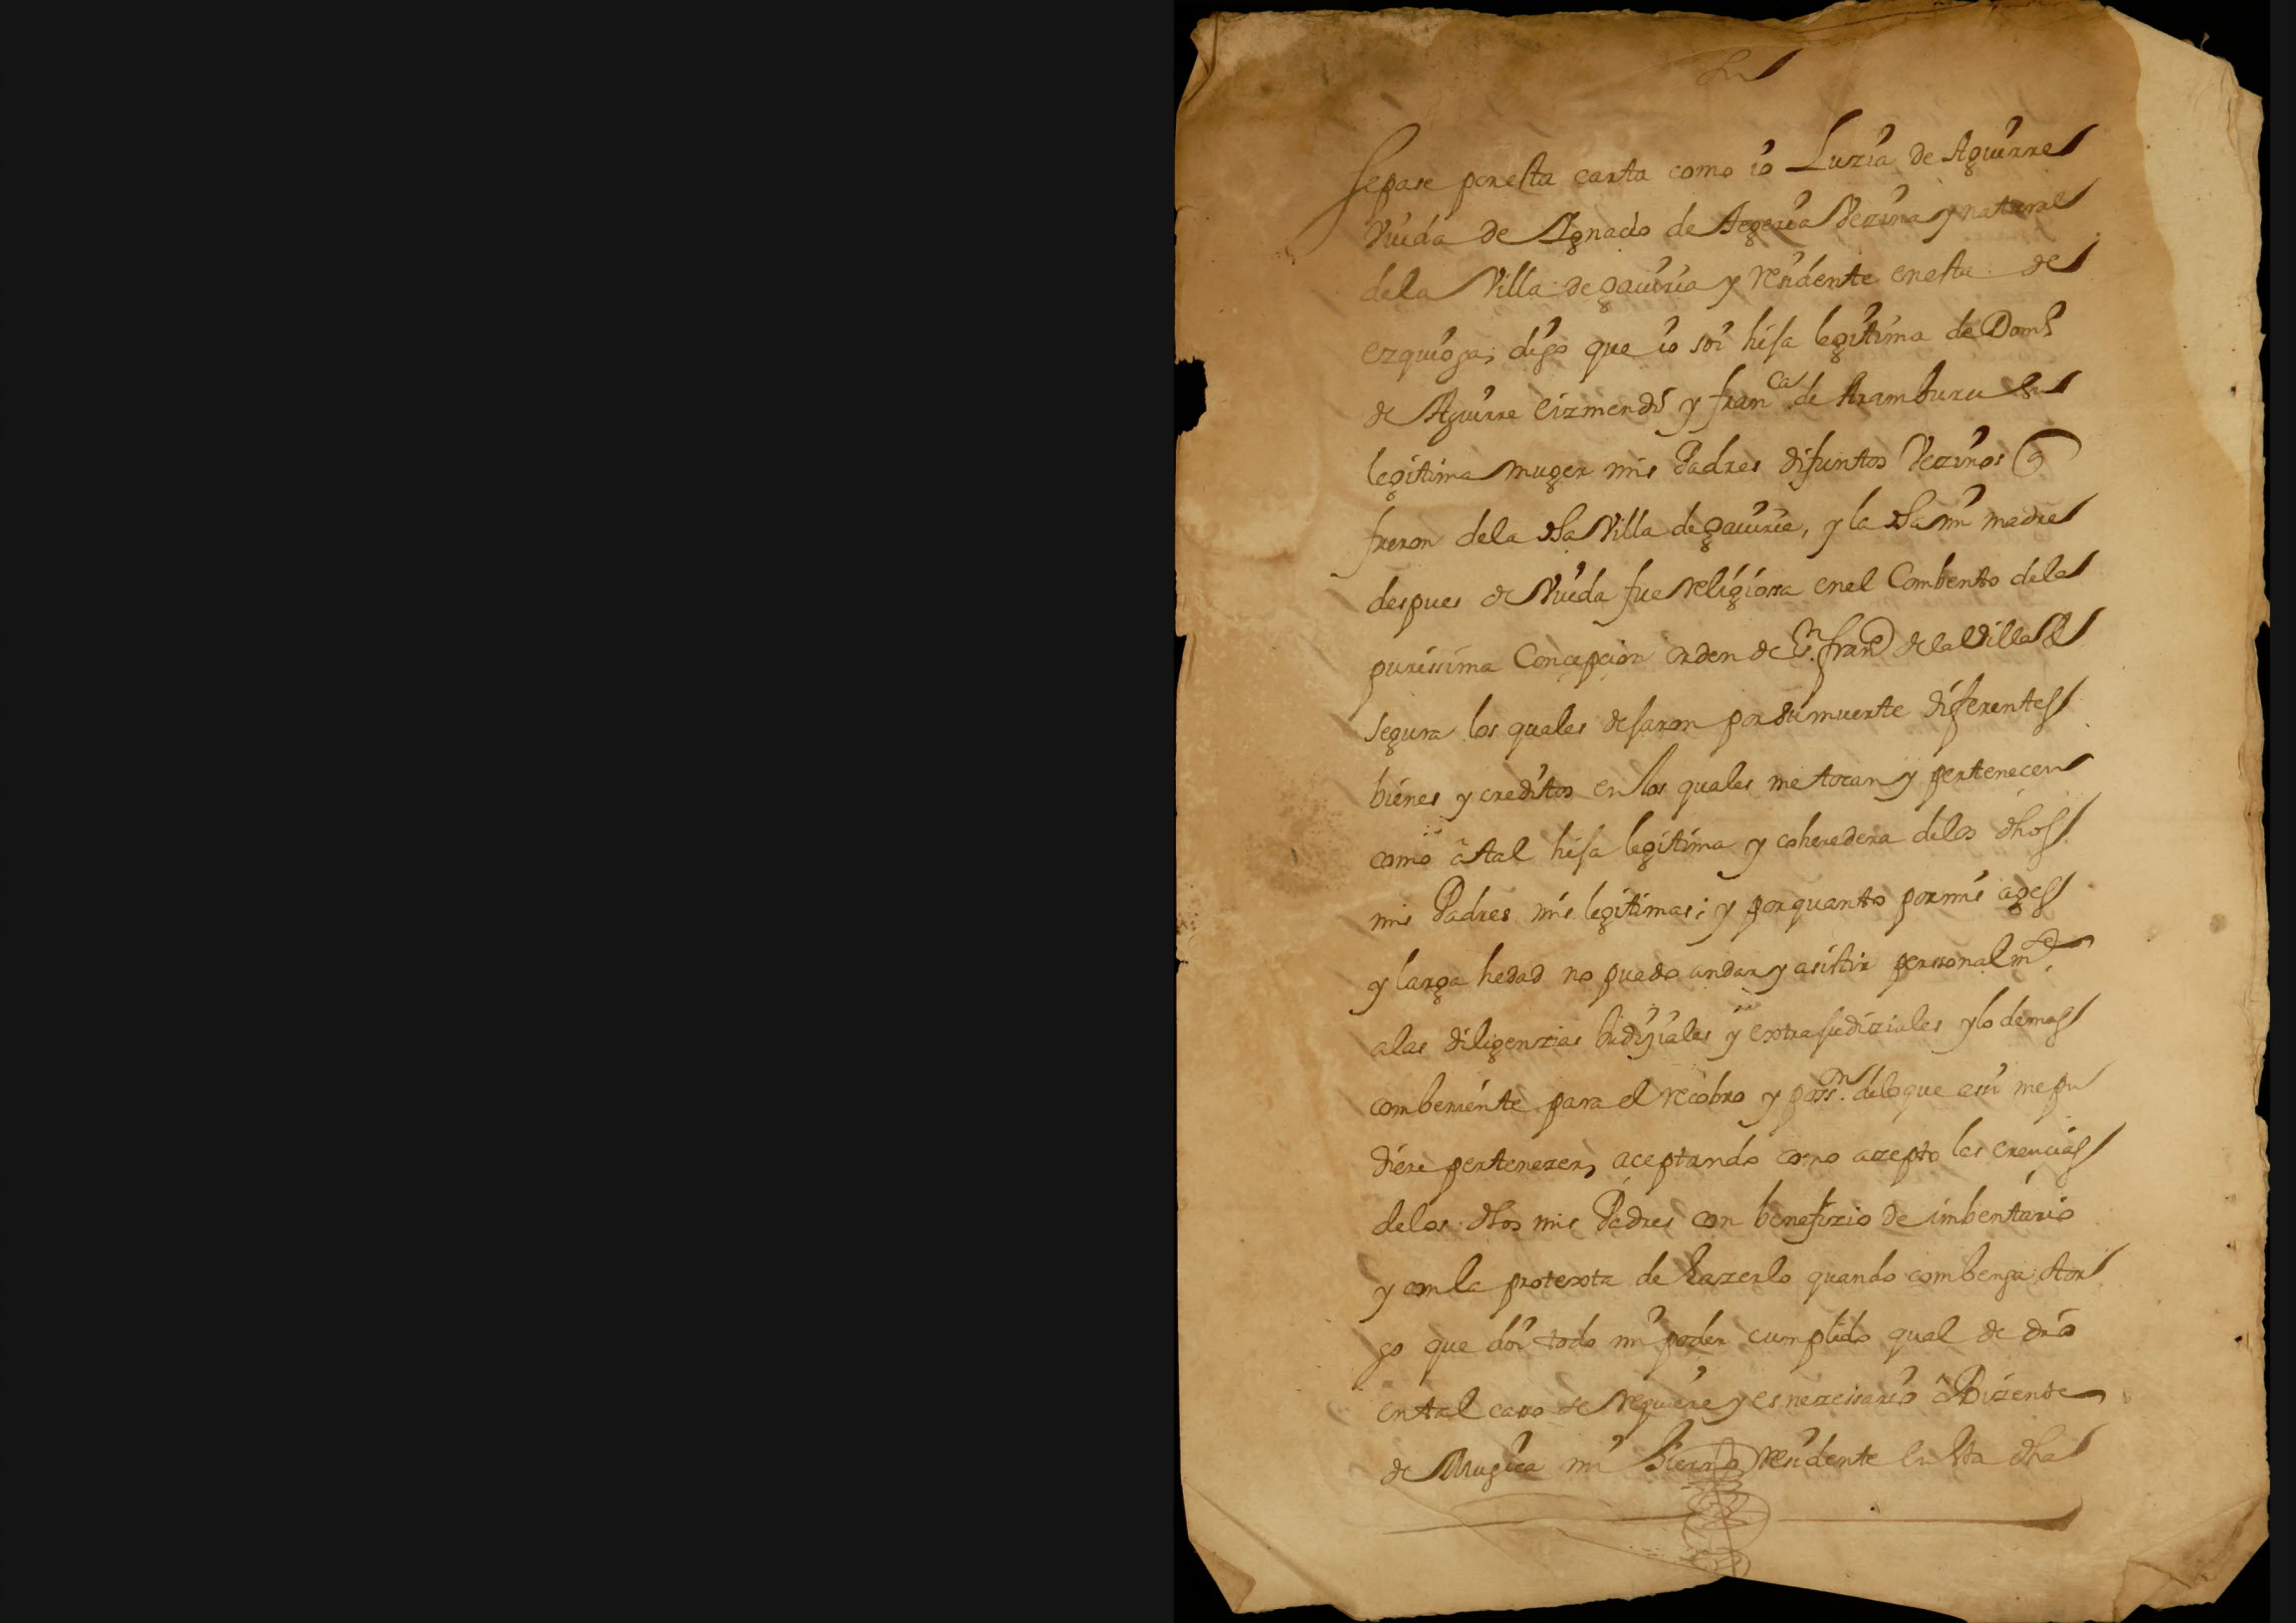 Sepase poresta carta como io Luzia de Aguirre
Viuda de Ygnacio de Aegeria Vezina y natural
dela Villa de gauiria y residente enesta de
ezquioga, digo que io soi hija legitima de Domº
de Aguirre eizmendi y franca de Aramburu su
legitima muger mis Padres difuntos Vezinos q
fueron dela dha Villa de gauiria, y la dha mi madre
despues de Viuda fue religiossa enel Combento dela
purissima Concepcion orden de Sn. franco de la Villa de
Segura los quales dejaron por su muerte diferentes
bienes y creditos en los quales me tocan y pertenecen
como â tal hija legitima y coheredera delos dhos
mis Padres mis legitimas; y porquanto por mis ages
y larga hedad no puedo andar y asistir personalmte
alas diligenzias judiziales y extrajudiziales y lo demas
combeniente para el recobro y posson. delo que assi me pu
diere pertenezer, aceptando como azepto las erencias
delos dhos mis Padres con benefizio de imbentario
y con la protexta de hazerlo quando combenga otor
go que doi todo mi poder cumplido qual de dro
en tal caso se requiere y es nezessario â Bizente
de Mugica mi hierno residente en sta dha